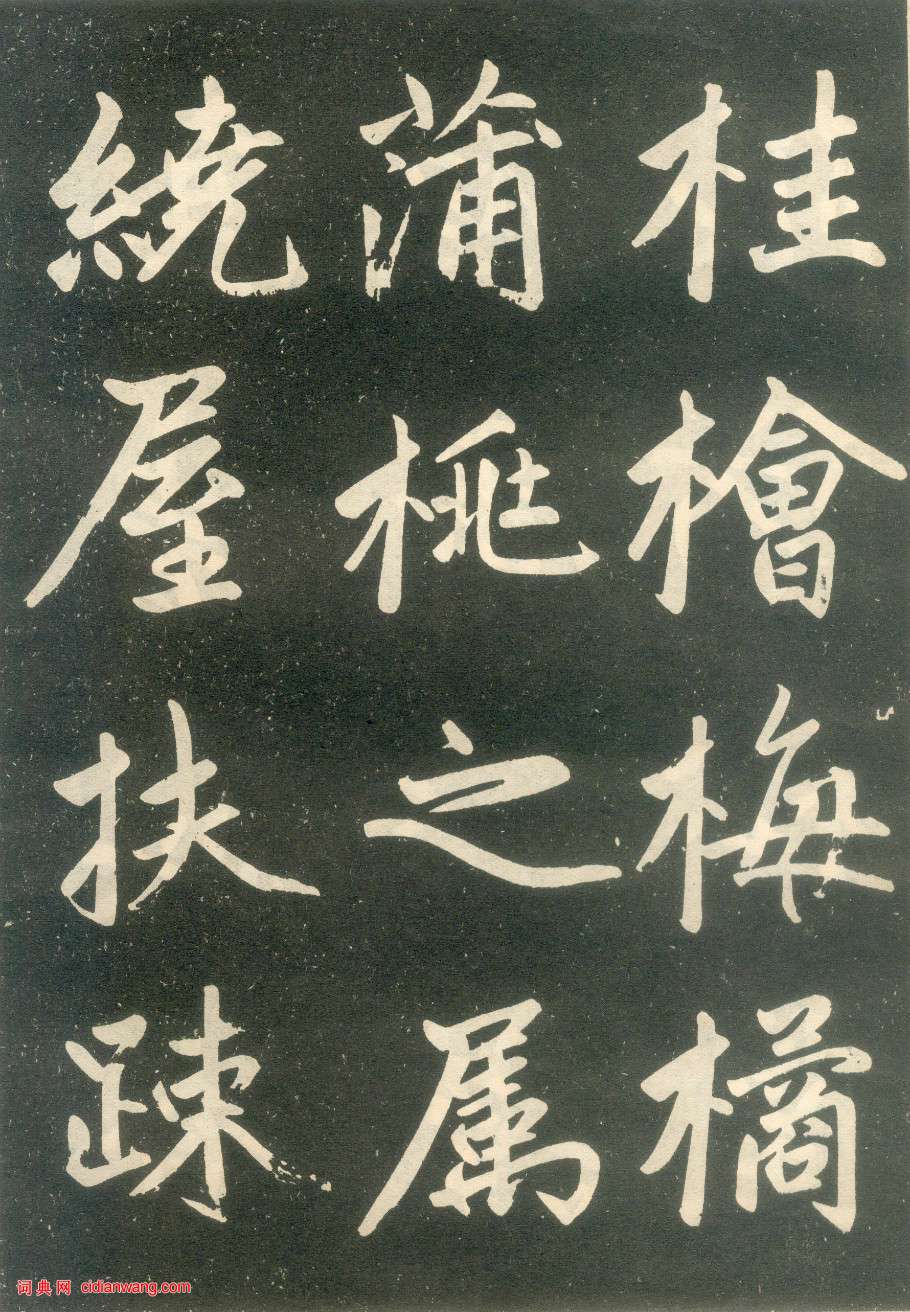 桂檜梅橘
蒲桃之属
繞屋扶踈
词典网 cidianwang.com